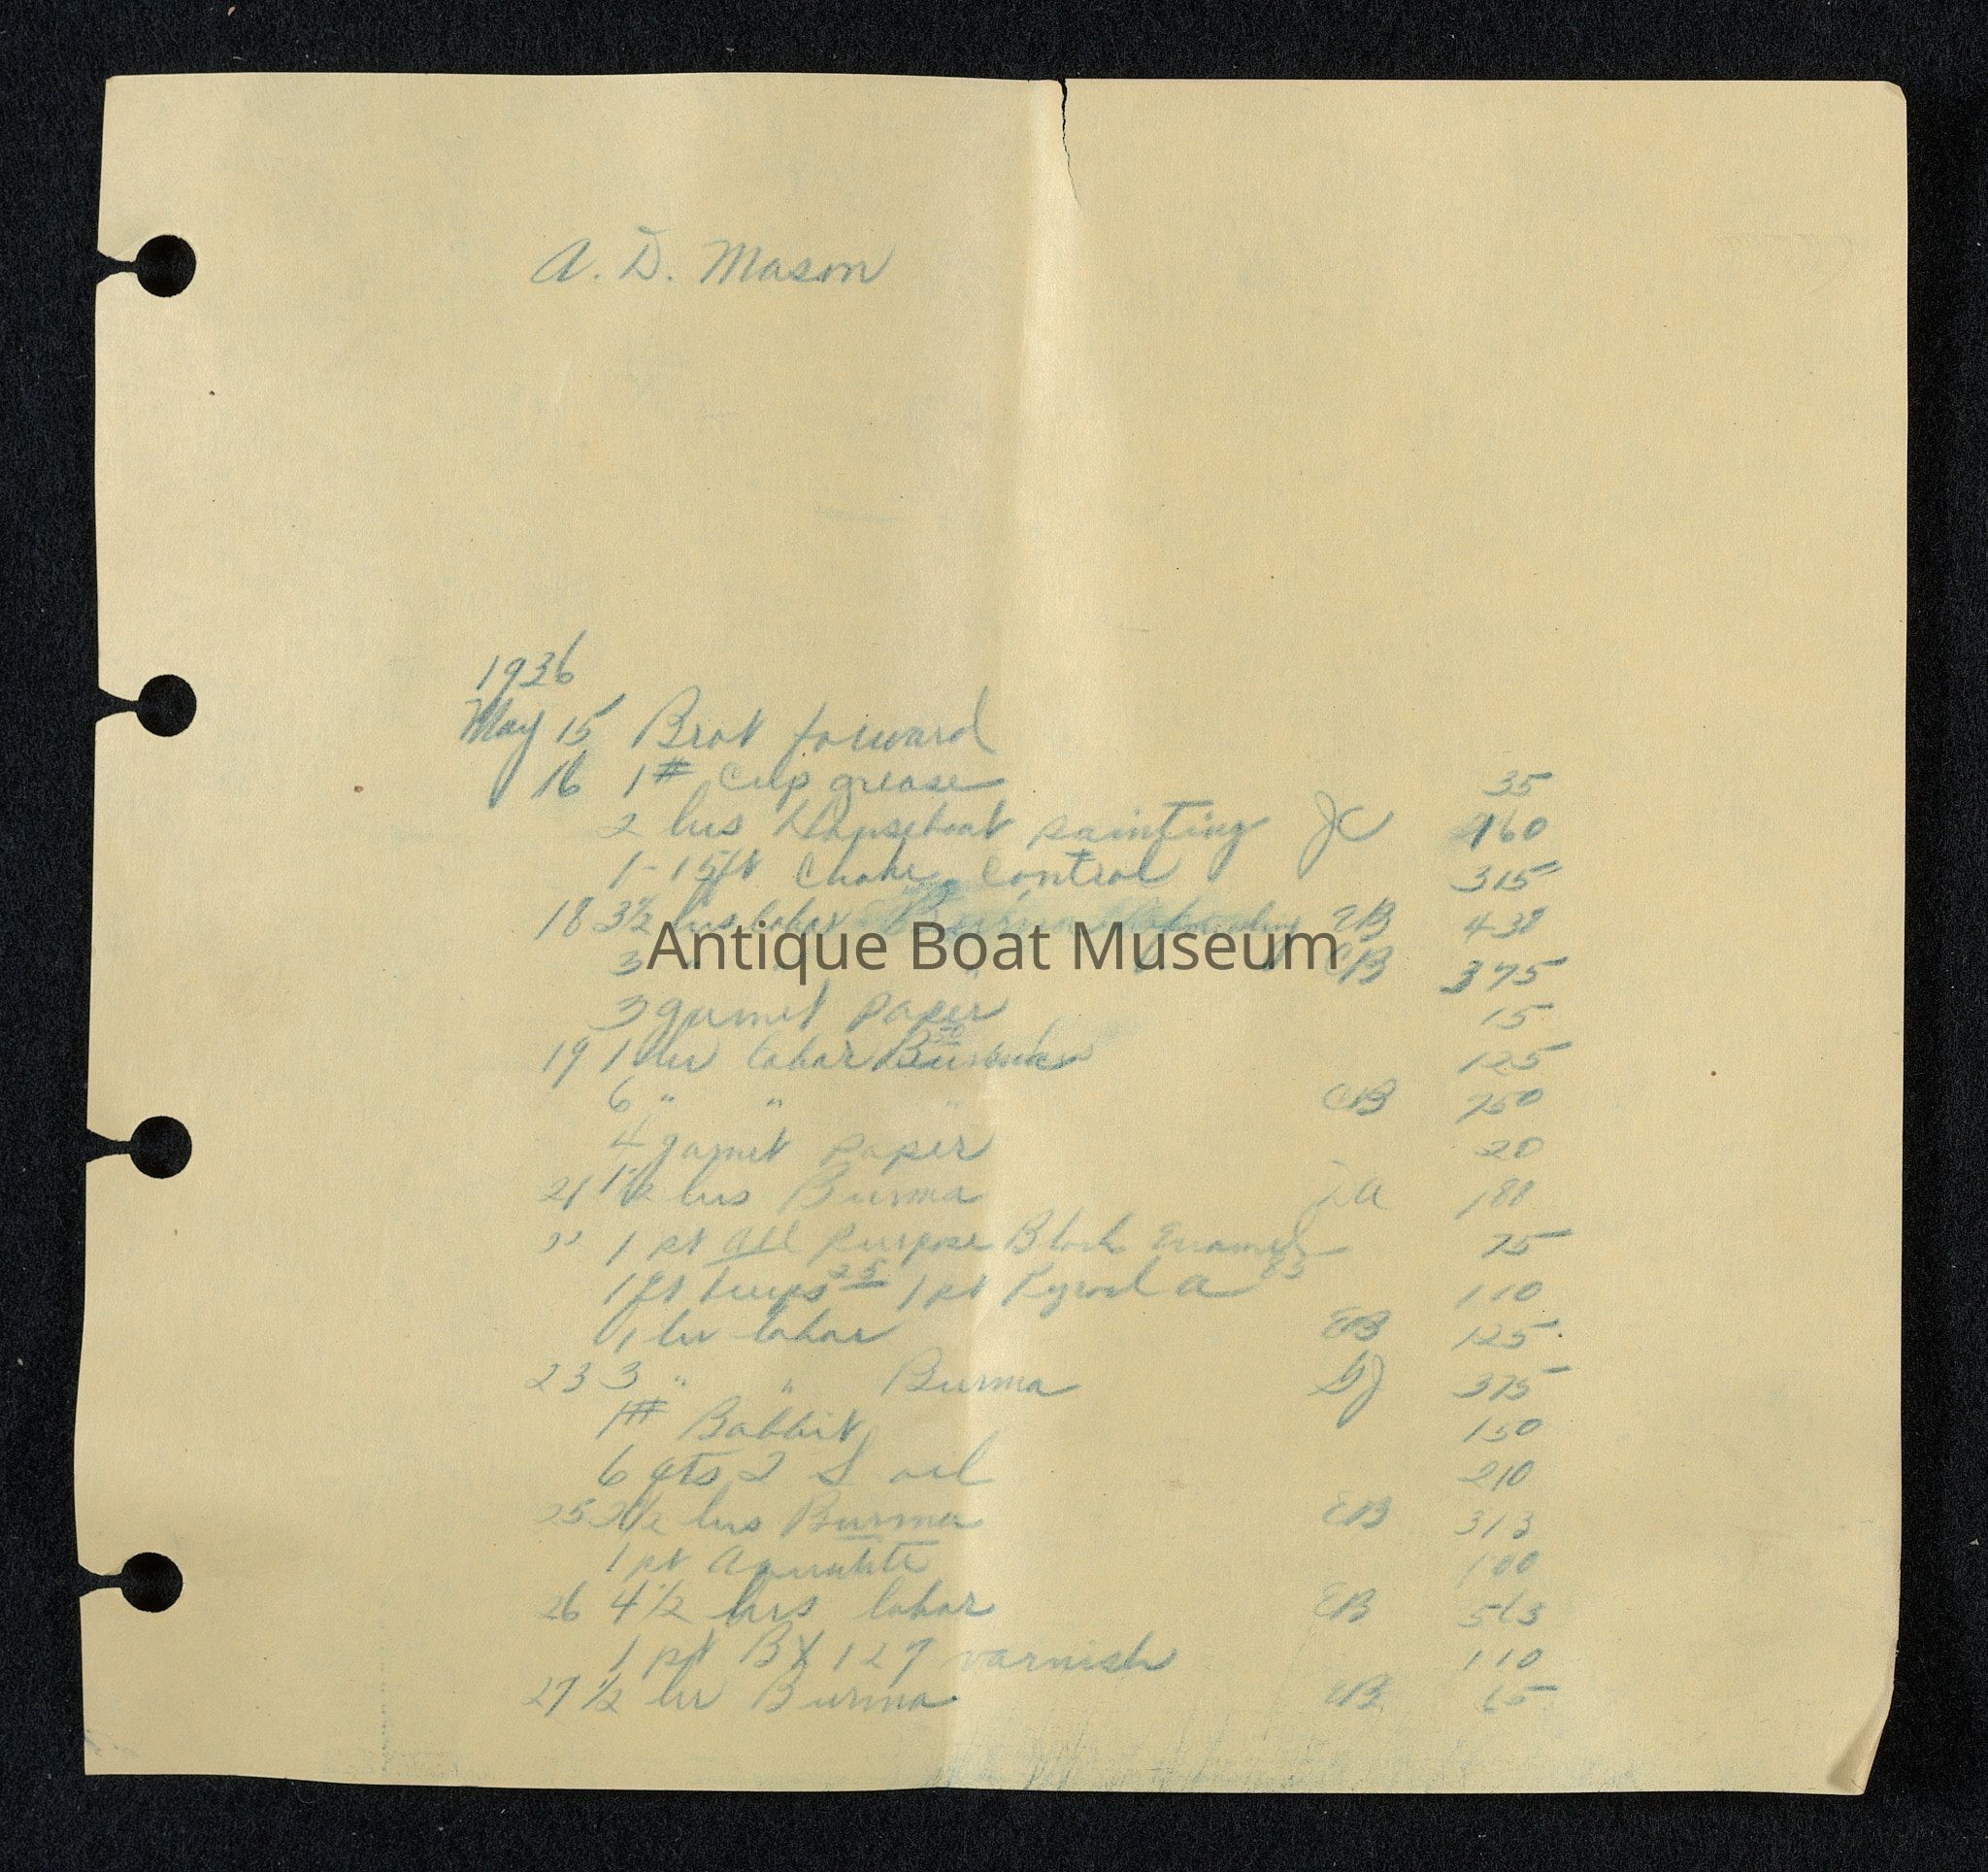 A. D. Mason
1936
May 15 Brot forward
16 1# Cup grease 35
2 hrs Houseboat painting JC 160
1-15ft Choke Control 315
18 3½ hrs labor EB 438
Antique Boat Museum
3 " CB 375
3 garnet paper 15
19 1 hr labor Burma 125
6 " " " CB 750
4 garnet paper 20
21 1½ hrs Burma 188
" 1 pt All Purpose Black Enamel 75
1 qt turps 25 1 pt a 85 110
1 hr labor EB 125
23 3 " " Burma GJ 375
1# Babbit 150
6 qts 2 S oil 210
25 2½ hrs Burma EB 313
1 pt 100
26 4½ hrs labor EB 563
1 pt BX 127 varnish 110
27 ½ hr Burma EB 65